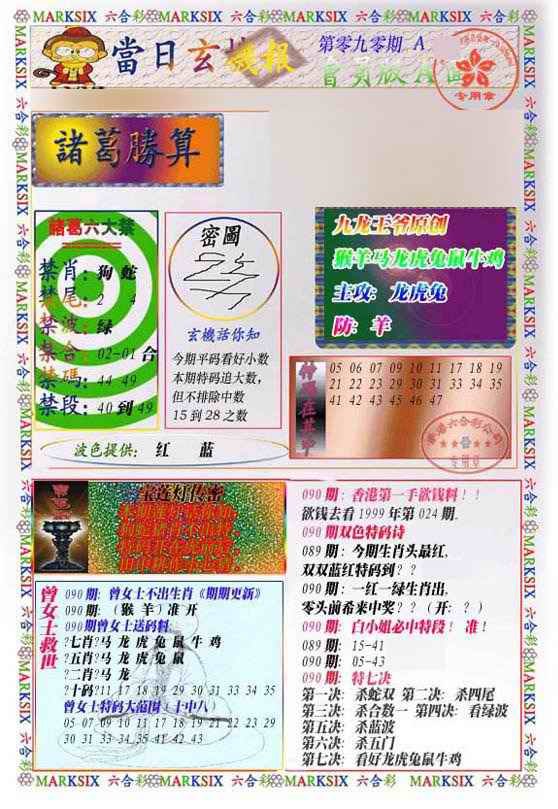 MARKSIX 六合彩 MARKSIX 六合彩 MARKSIX 六合彩 MARKSIX
當日玄機报
第零九零期 A
會員版A面
专用章
諸葛勝算
諸葛六大禁
禁肖：狗 蛇
禁尾：2 4
禁波：绿
禁合：02-01 合
禁碼：44 49
禁段：40 到 49
密圖
玄機話你知
今期平码看好小数
本期特码追大数，
但不排除中数
15 到 28 之数
波色提供： 红 蓝
九龙王爷原创
猴羊马龙虎兔鼠牛鸡
主攻：龙虎兔
防：羊
05 06 07 09 10 11 17 18 19
21 22 23 29 30 31 33 34 35
41 42 43 45 46 47
专用章
宝莲灯传密
曾女士救世
090 期：曾女士不出生肖《期期更新》
090 期：（猴 羊）准 开
090 期曾女士送码料：
?七肖?马 龙 虎 兔 鼠 牛 鸡
?五肖?马 龙 虎 兔 鼠
?二肖?马 龙
?十码?11 17 18 19 29 30 31 33 34 35
曾女士特码大范围（十中八）
05 07 09 10 11 17 18 19 21 22 23 29
30 31 33 34 35 41 42 43
090 期：香港第一手欲钱料！！
欲钱去看 1999 年第 024 期．
090 期双色特码诗
089 期：今期生肖头最红，
双双蓝红特码到？？
090 期：一红一绿生肖出，
零头前希来中奖？？（开：？）
090 期：白小姐必中特段！ 准！
089 期：15-41
090 期：05-43
090 期：特七决
第一决：杀蛇双 第二决：杀四尾
第三决：杀合数一 第四决：看绿波
第五决：杀蓝波
第六决：杀五门
第七决：看好龙虎兔鼠牛鸡
MARKSIX 六合彩 MARKSIX 六合彩 MARKSIX 六合彩 MARKSIX